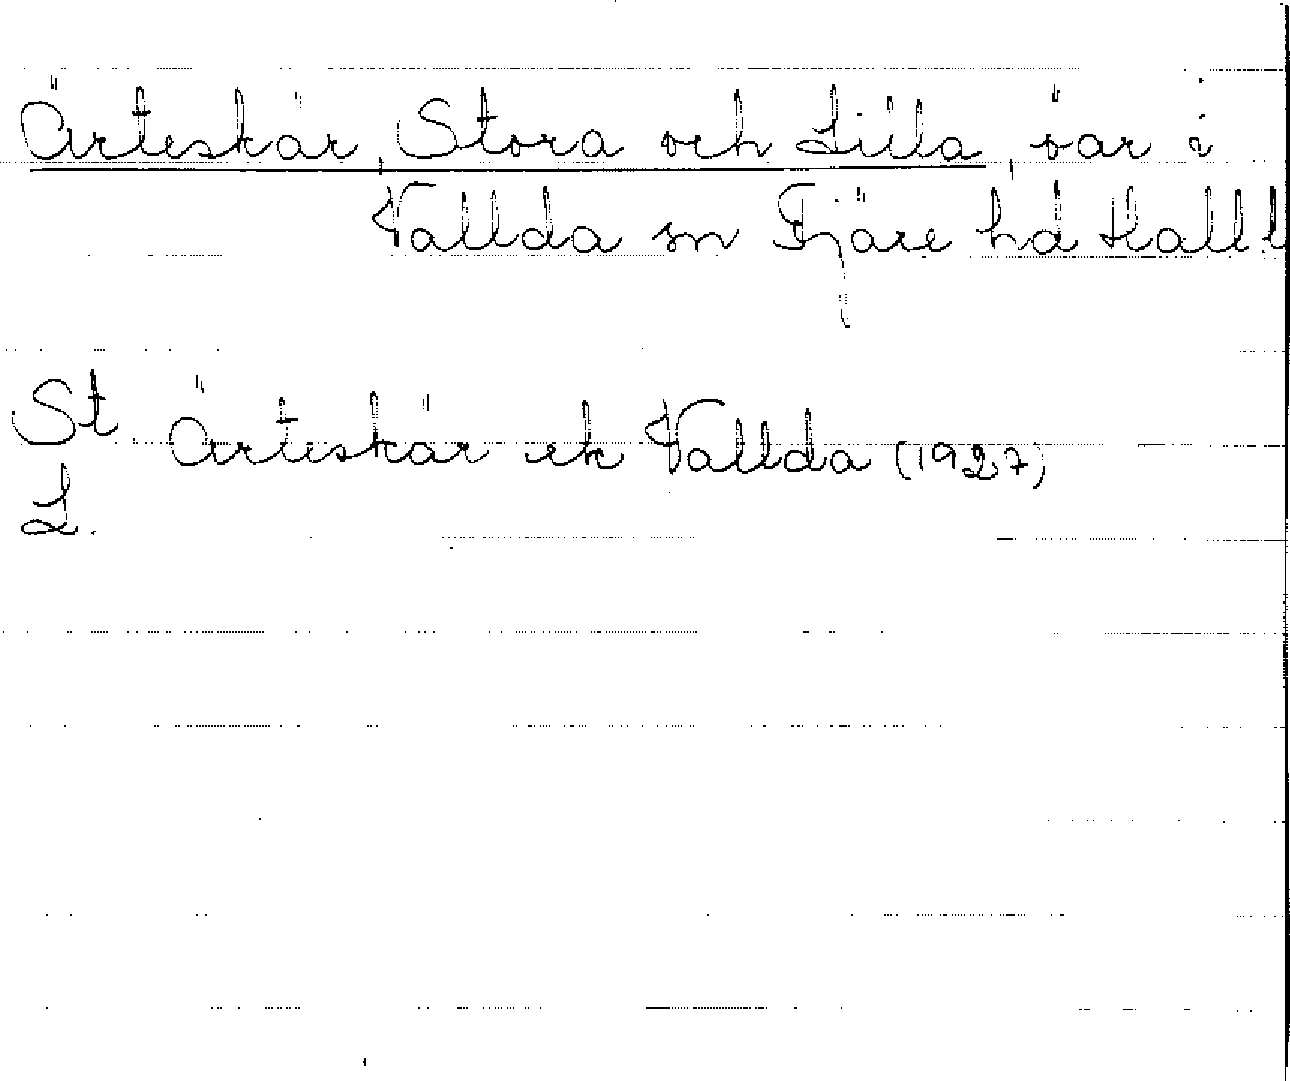 Ärteskär, Stora och Lilla, öar i
Vallda sn Fjäre hd Hall.
St Ärteskär ek Vallda (1927)
L.